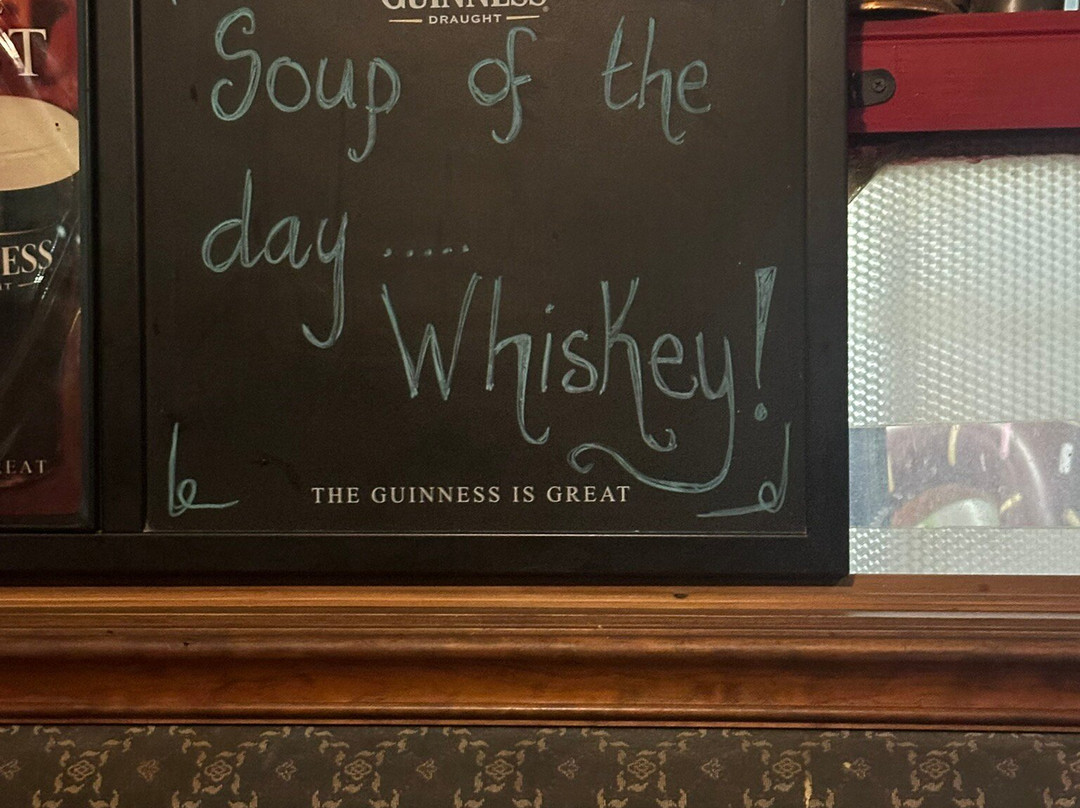 GUINNESS
DRAUGHT
Soup of the
day .....
Whiskey!
THE GUINNESS IS GREAT
T
ESS
IT
EAT